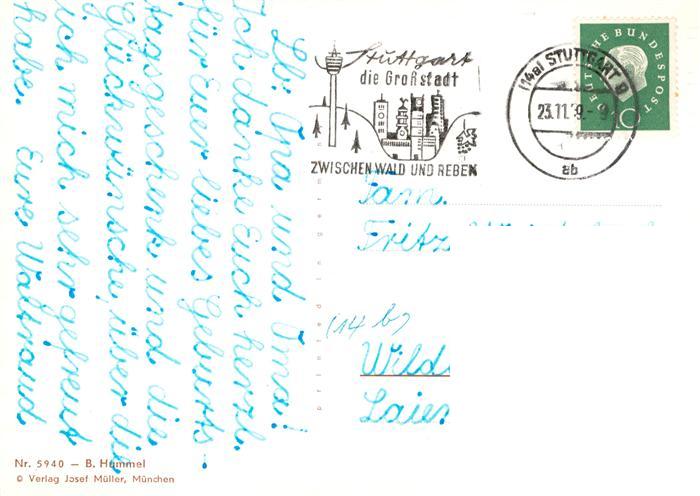 Lb. Oma und Opa!
Ich danke Euch herzl.
für Euer liebes Geburts-
tagsgeschenk und die
Glückwünsche, über die
ich mich sehr gefreut
habe. Eure Waltraud
Stuttgart
die Großstadt
ZWISCHEN WALD UND REBEN
(14a) STUTTGART 9
23.11.59.-9
ab
DEUTSCHE BUNDESPOST
10
Fam.
Fritz
(14 b)
Wild
Laier
printed in germany
Nr. 5940 — B. Hummel
© Verlag Josef Müller, München